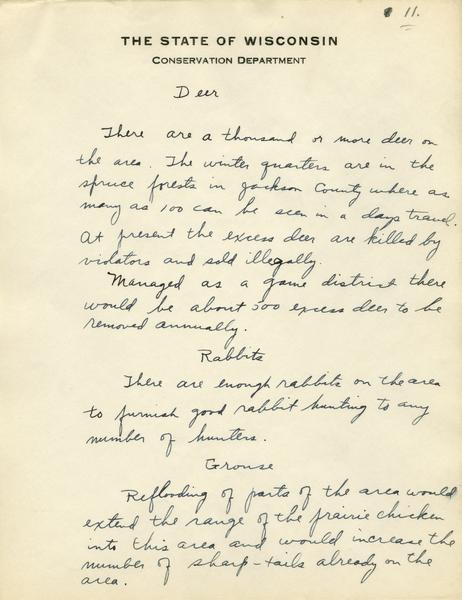 11.
THE STATE OF WISCONSIN
CONSERVATION DEPARTMENT
Deer
There are a thousand or more deer on
the area. The winter quarters are in the
spruce forests in Jackson County where as
many as 100 can be seen in a days travel.
At present the excess deer are killed by
violators and sold illegally.
Managed as a game district there
would be about 500 excess deer to be
removed annually.
Rabbits
There are enough rabbits on the area
to furnish good rabbit hunting to any
number of hunters.
Grouse
Reflooding of parts of the area would
extend the range of the prairie chicken
into this area and would increase the
number of sharp-tails already on the
area.